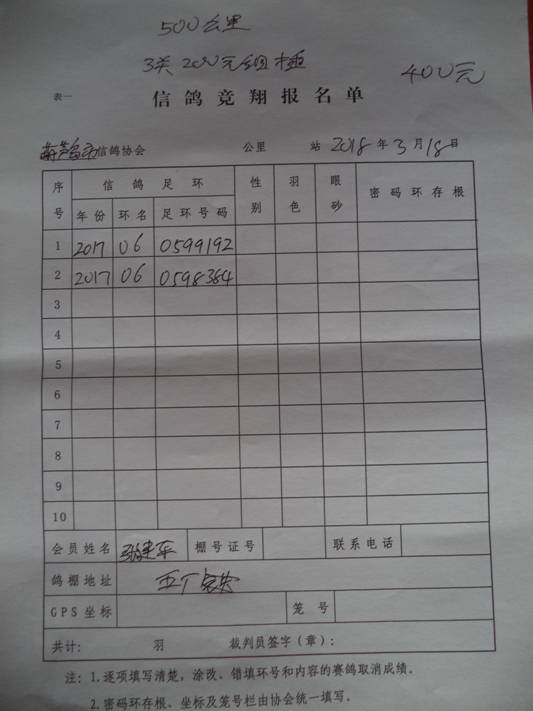 500公里
3关200元组
400元
表一
信鸽竞翔报名单
葫芦岛市信鸽协会 公里 站 2018年3月18日
序号 信鸽足环 性别 羽色 眼砂 密码环存根
年份 环名 足环号码
1 2017 06 0599192
2 2017 06 0598364
3
4
5
6
7
8
9
10
会员姓名 棚号证号 联系电话
鸽棚地址
GPS坐标 笼号
共计: 羽 裁判员签字(章):
注: 1.逐项填写清楚,涂改、错填环号和内容的赛鸽取消成绩。
2.密码环存根、坐标及笼号栏由协会统一填写。